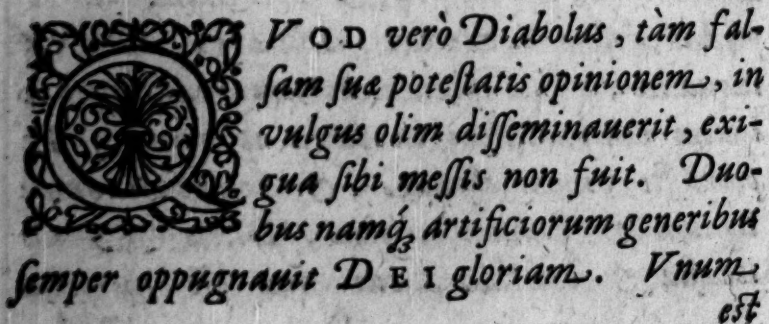 QVOD verò Diabolus, tàm fal-
ſam ſuæ poteſtatis opinionem, in
vulgus olim diſſeminauerit, exi-
gua ſibi meſſis non fuit. Duo-
bus namq́; artificiorum generibus
ſemper oppugnauit DEI gloriam. Vnum
eſt